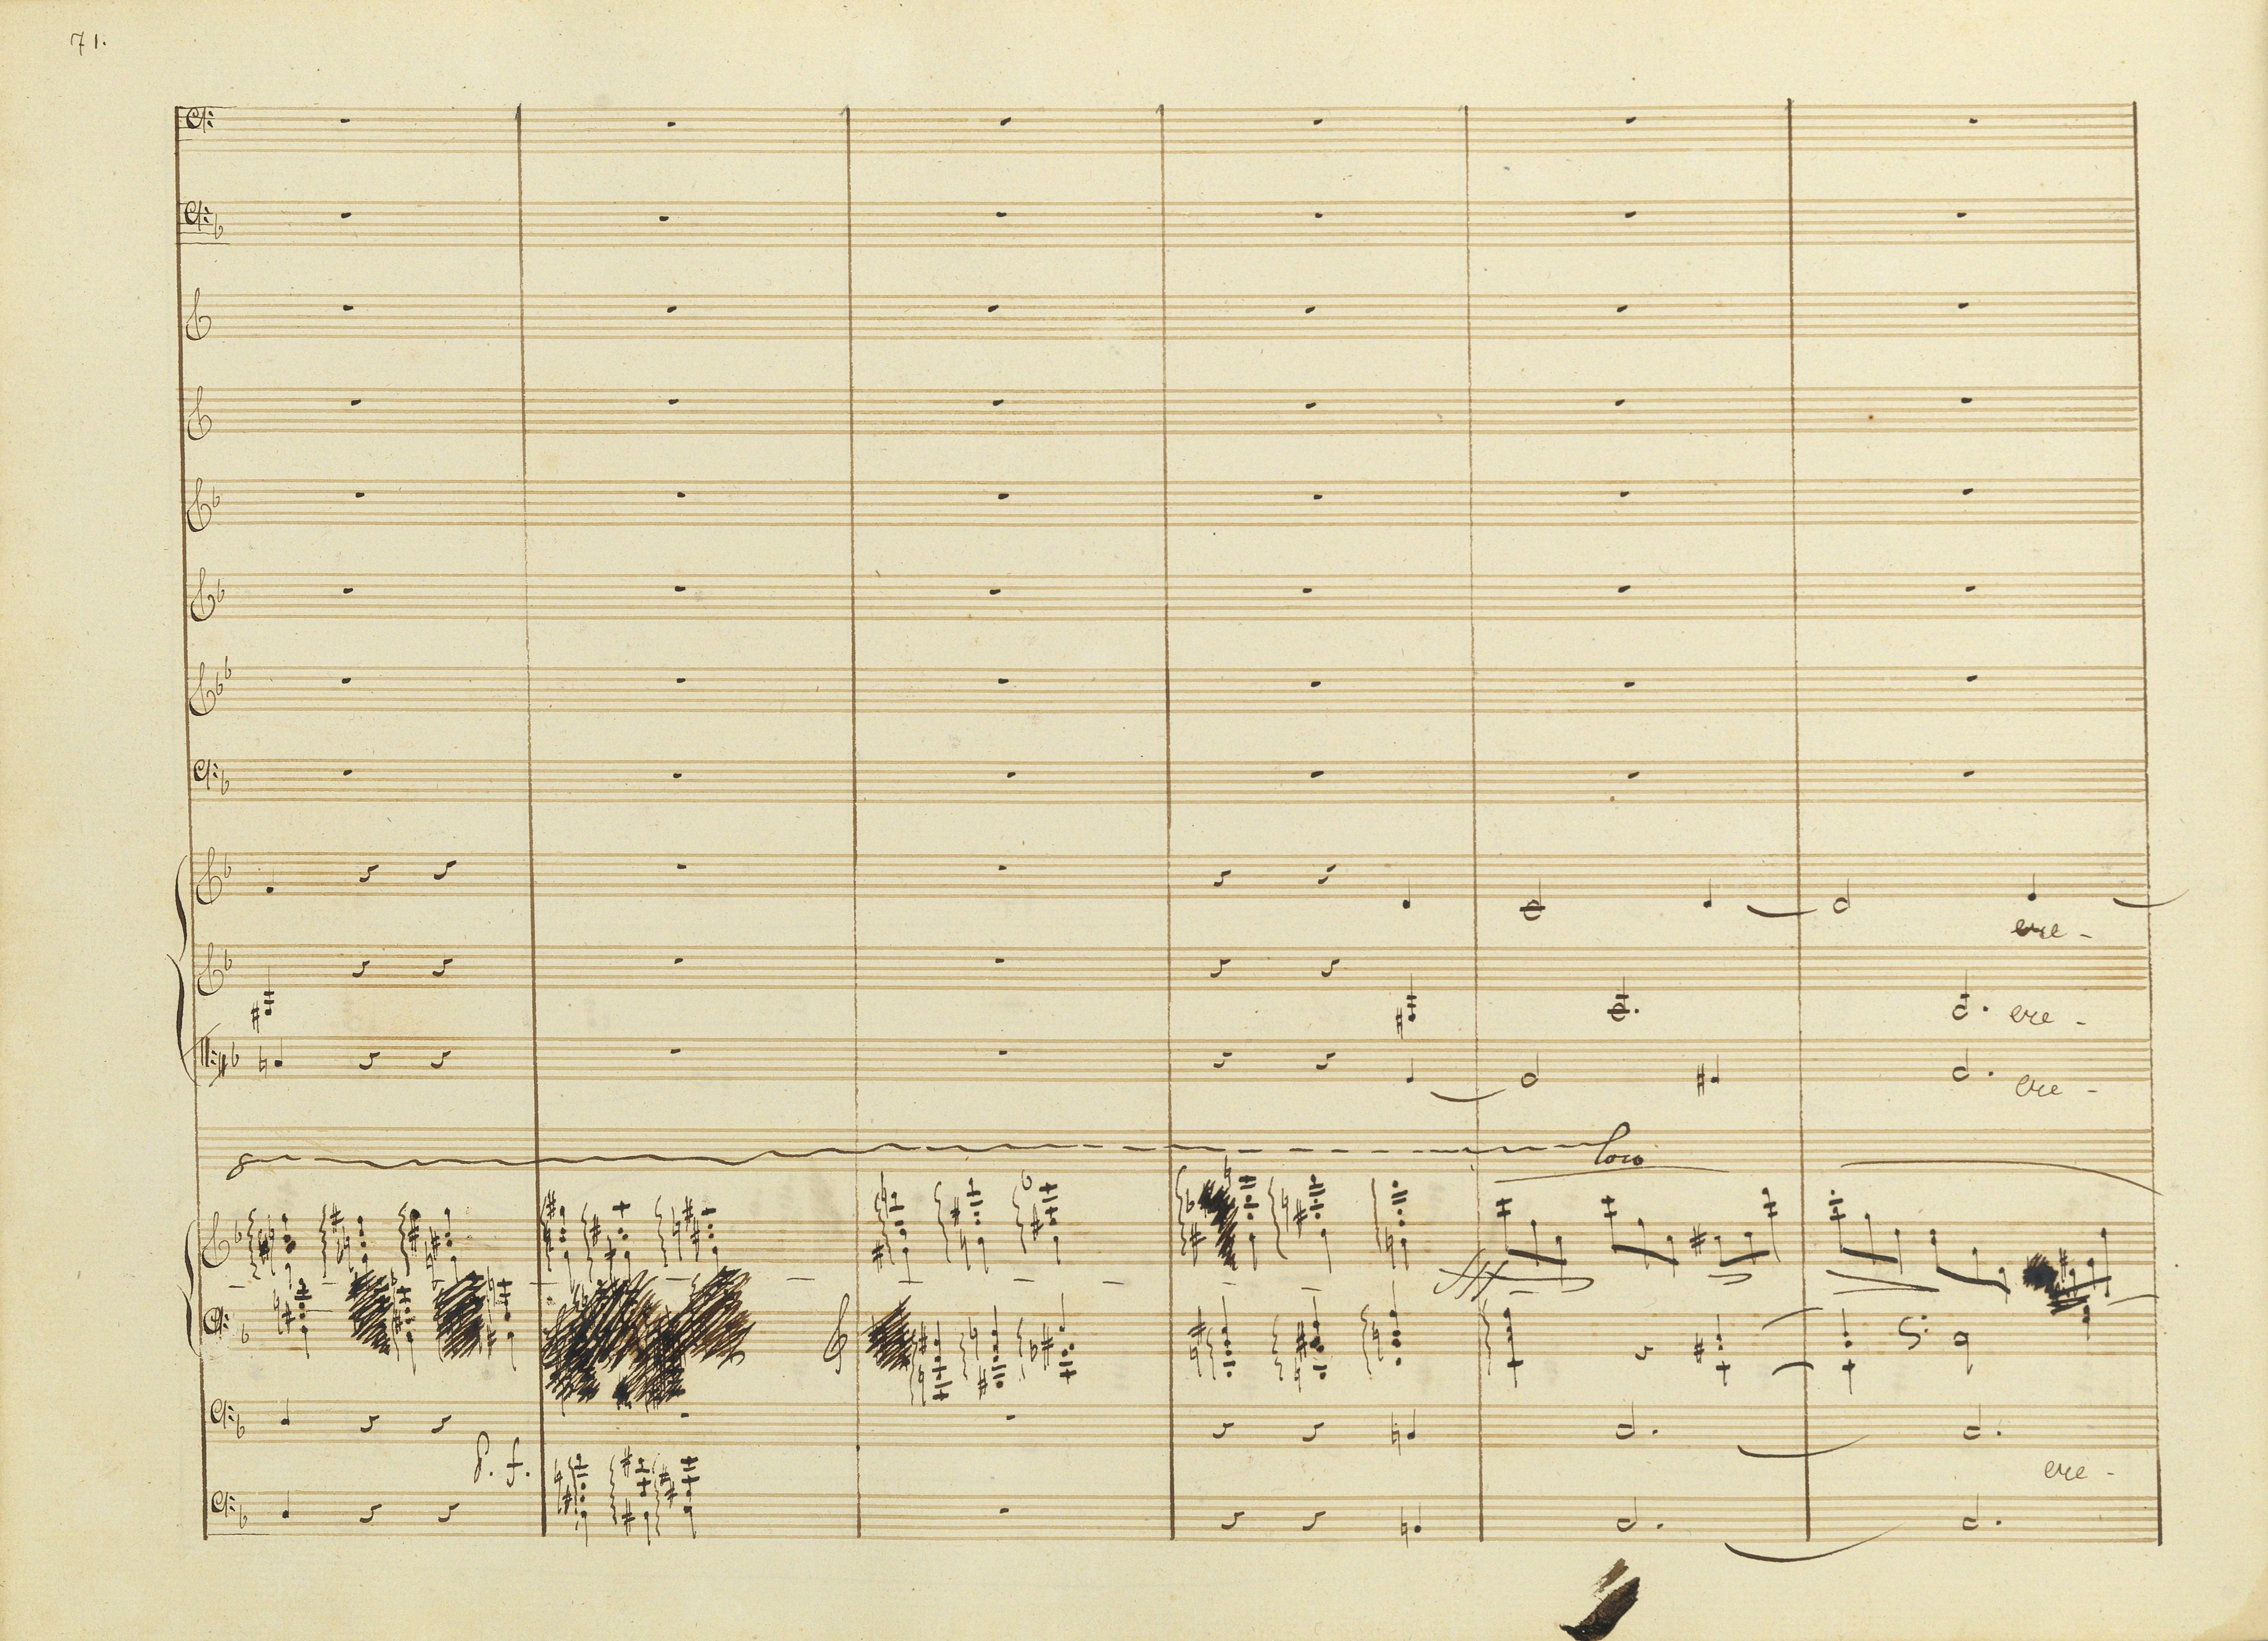 71.
cre -
cre -
cre -
8
loco
fff
S. f.
cre -